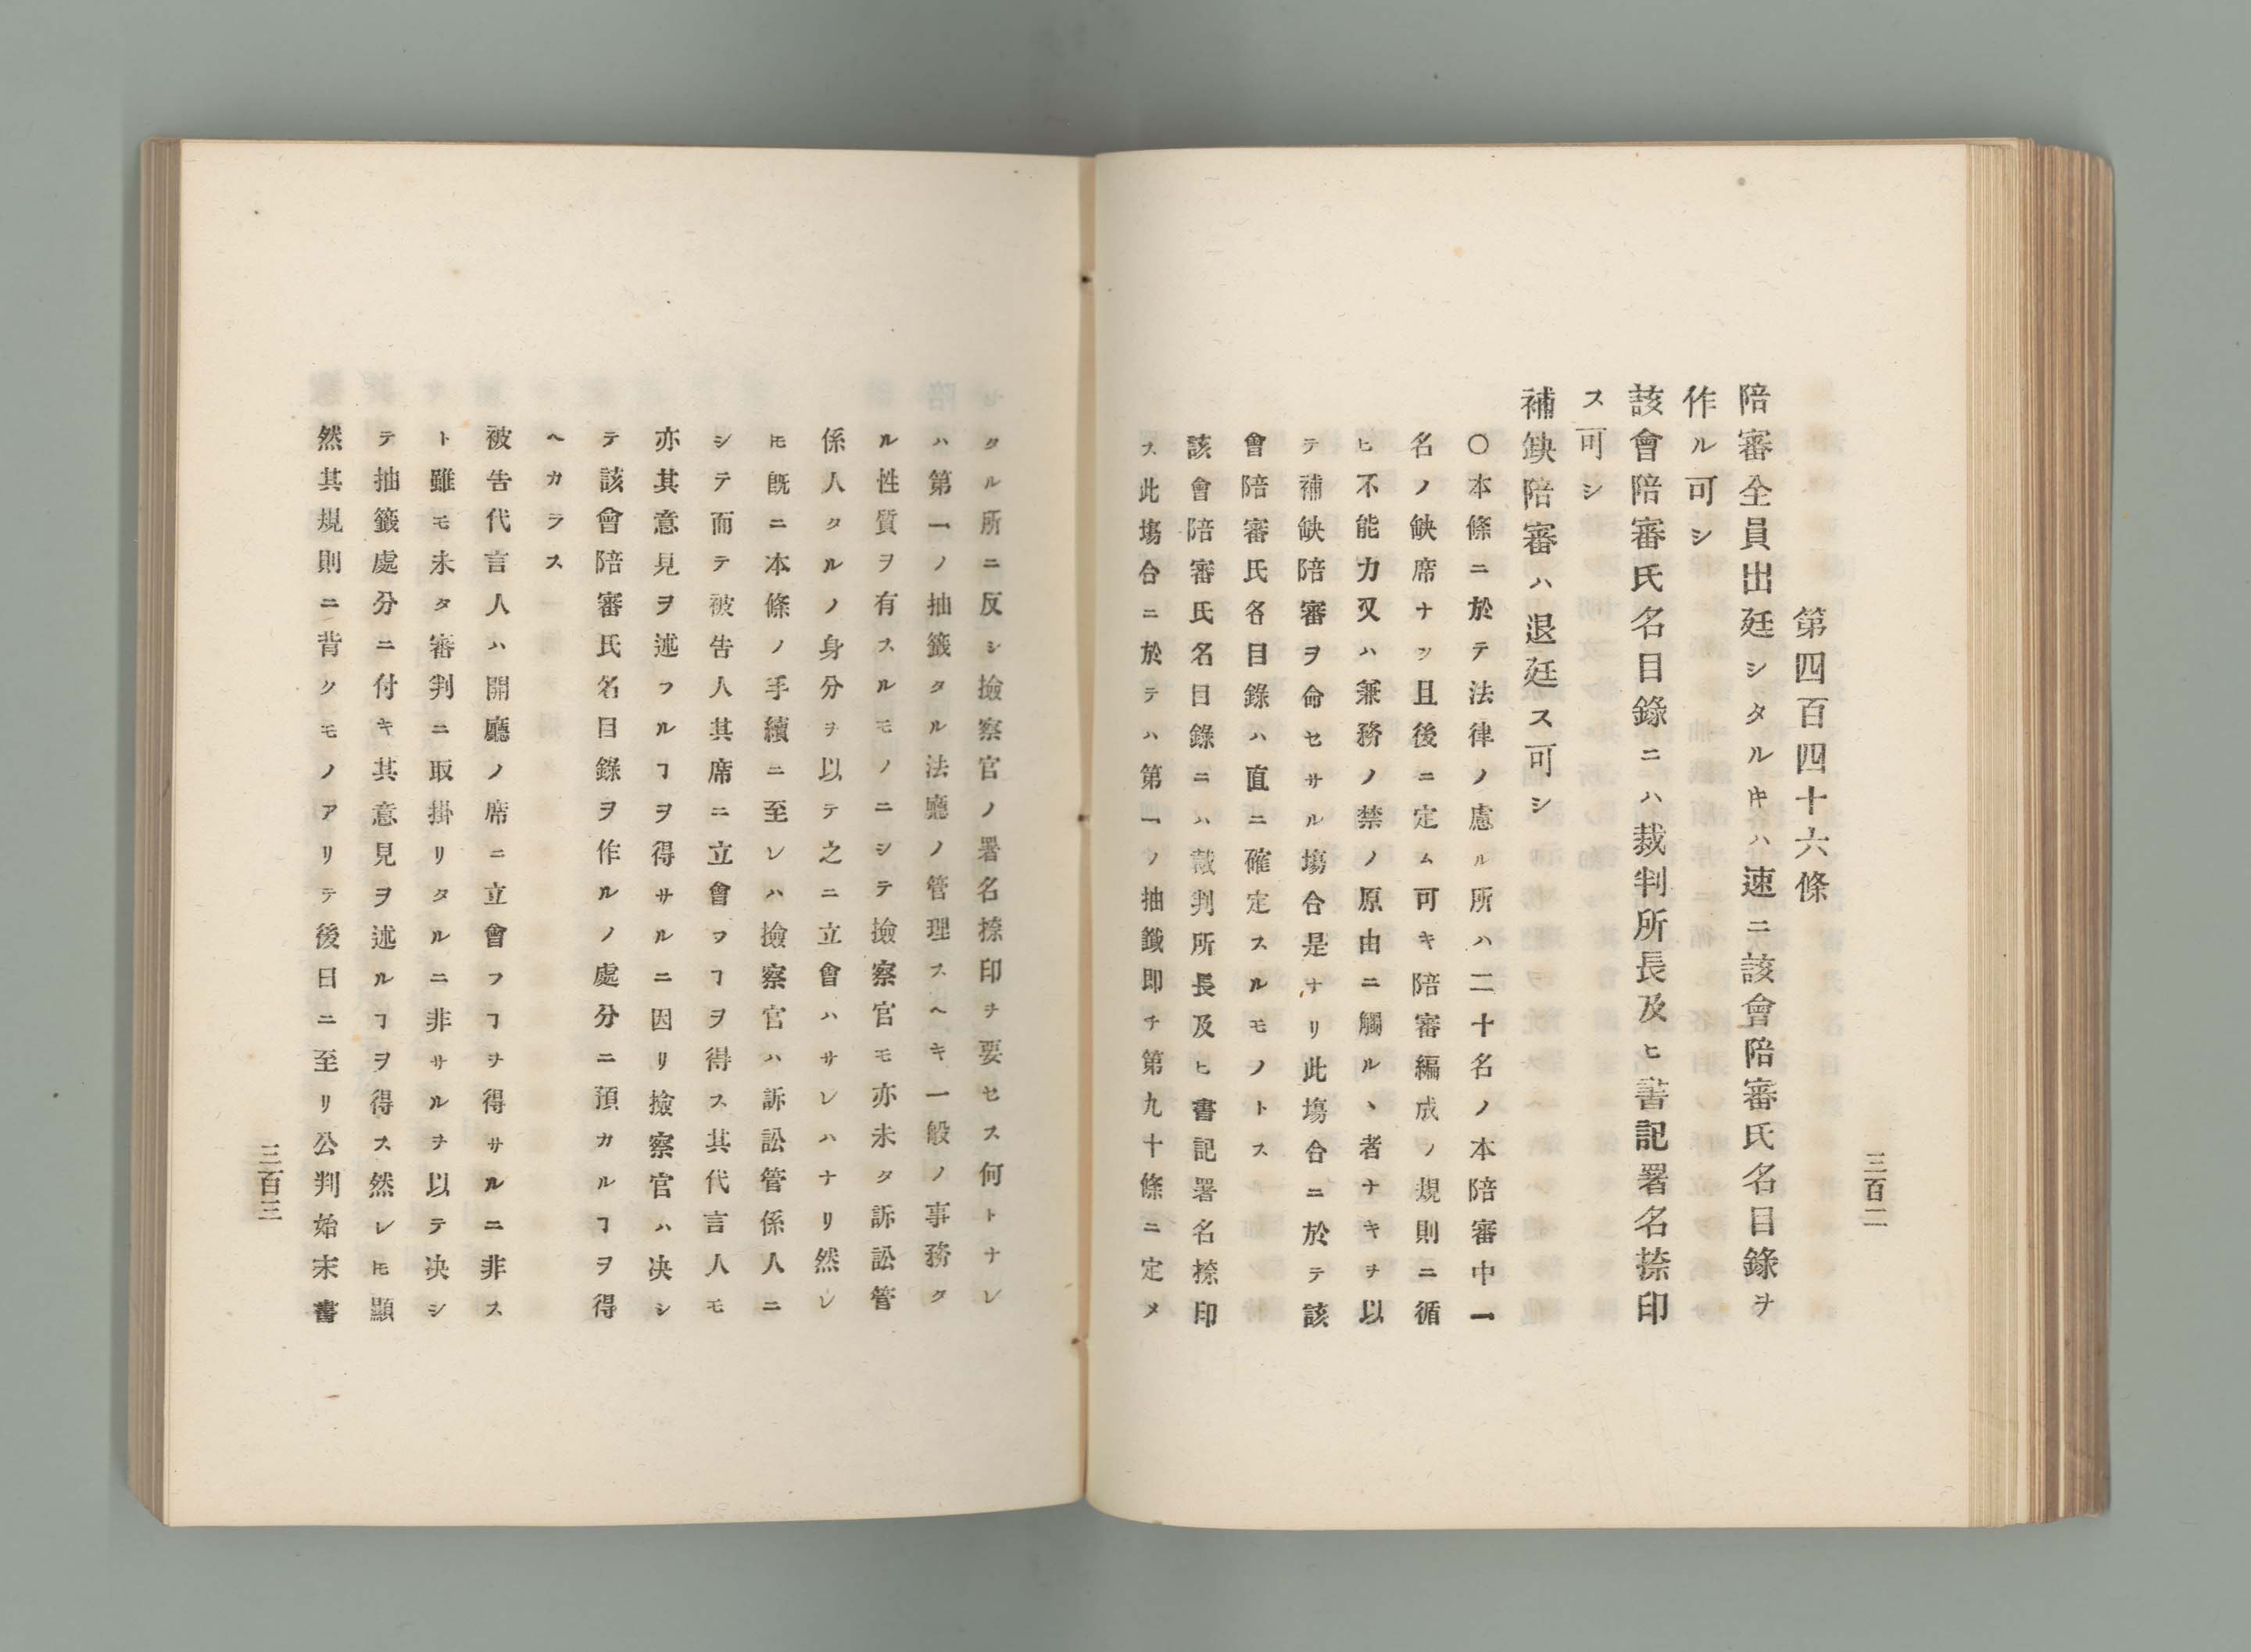 三百二
第四百四十六條
陪審全員出廷シタル𪜈ハ速ニ該會陪審氏名目錄ヲ
作ル可シ
該會陪審氏名目錄ニハ裁判所長及ヒ書記署名捺印
ス可シ
補缺陪審ハ退廷ス可シ
〇本條ニ於テ法律ノ慮ル所ハ二十名ノ本陪審中一
名ノ缺席ナク且後ニ定ム可キ陪審編成ノ規則ニ循
ヒ不能力又ハ兼務ノ禁ノ原由ニ觸ルヽ者ナキヲ以
テ補缺陪審ヲ命セサル塲合是ナリ此塲合ニ於テ該
會陪審氏名目錄ハ直ニ確定スルモノトス
該會陪審氏名目錄ニハ裁判所長及ヒ書記署名捺印
ス此塲合ニ於テハ第一ノ抽籤即チ第九十條ニ定メ
タル所ニ反シ撿察官ノ署名捺印ヲ要セス何トナレ
ハ第一ノ抽籤タル法廳ノ管理スヘキ一般ノ事務タ
ル性質ヲ有スルモノニシテ撿察官モ亦未タ訴訟管
係人タルノ身分ヲ以テ之ニ立會ハサレハナリ然レ
𪜈既ニ本條ノ手續ニ至レハ撿察官ハ訴訟管係人ニ
シテ而テ被告人其席ニ立會フヿヲ得ス其代言人モ
亦其意見ヲ述フルヿヲ得サルニ因リ撿察官ハ决シ
テ該會陪審氏名目錄ヲ作ルノ處分ニ預カルヿヲ得
ヘカラス
被告代言人ハ開廳ノ席ニ立會フヿヲ得サルニ非ス
ト雖モ未タ審判ニ取掛リタルニ非サルヲ以テ决シ
テ抽籤處分ニ付キ其意見ヲ述ルヿヲ得ス然レ𪜈顯
然其規則ニ背クモノアリテ後日ニ至リ公判始末書
三百三